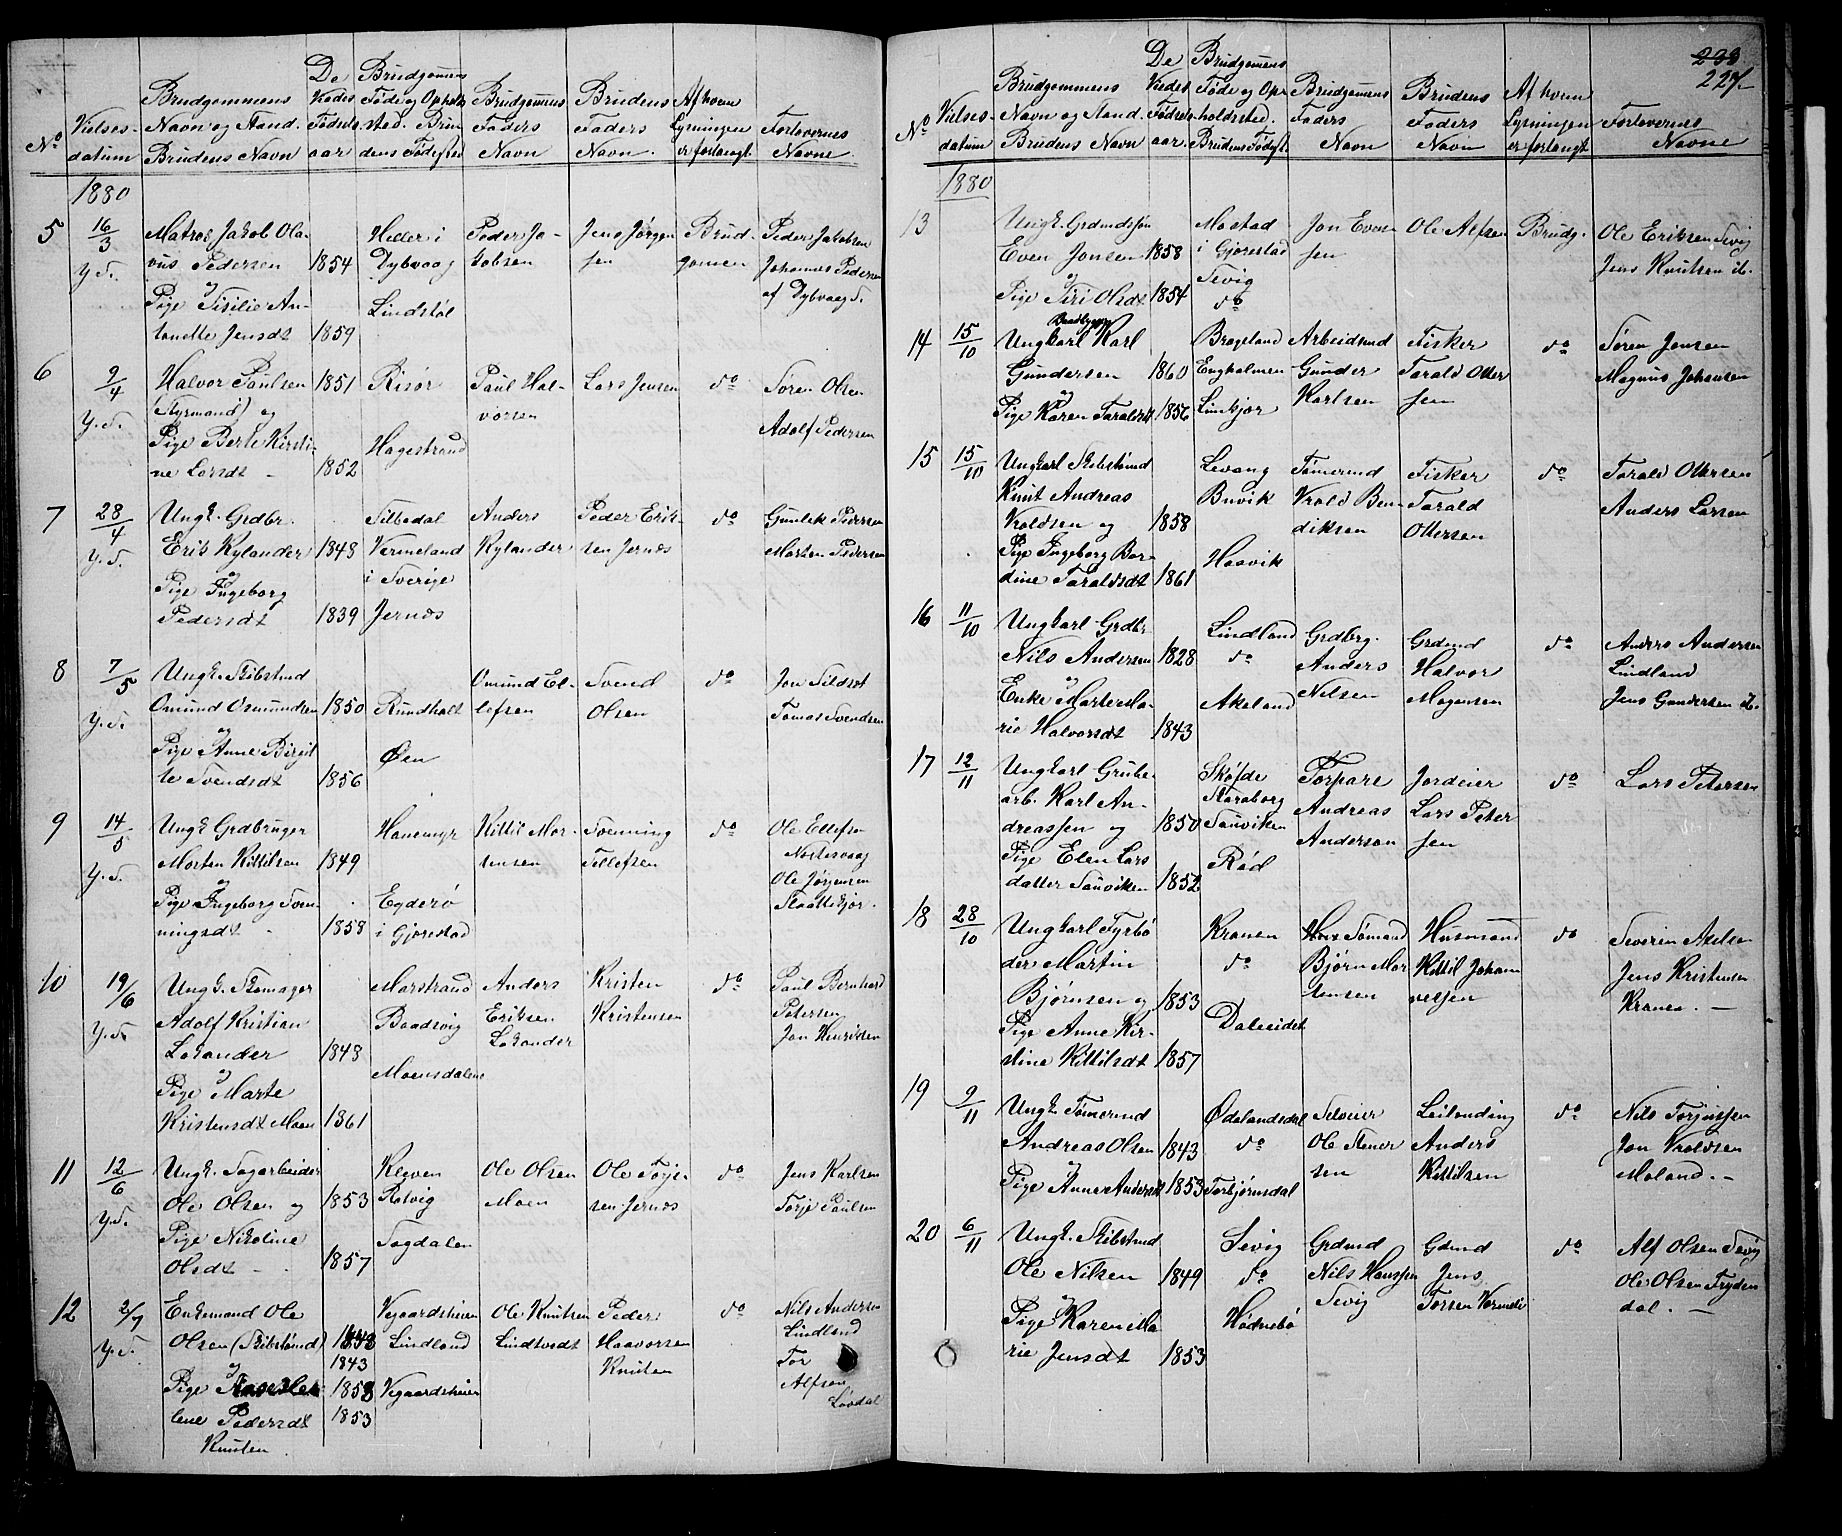 No
Vielses-
datum
Brudgommens
Navn og Stand.
Brudens Navn
De
Viedes
Fødsels
aar
Brudgomens
Føde og Opholds
sted. Bru
dens Fødested
Brudgomens
Faders
Navn
Brudens
Faders
Navn.
Af hvem
Lysningen
er forlangt
Forlovernes
Navne.
1880
5
16/3
Y.S.
Matros Jakob Ola-
vus Pedersen
og
Pige Sisilie An-
tonette Jensdt
1854
1859
Heller i
Dybvaag
Lindstøl
Peder Ja-
kobsen
Jens Jørgen
sen
Brud-
gomen
Peder Jakobsen
Johannes Pedersen
af Dybvaag S.
6
9/4
Y.S.
Halvor Paulsen
(Styrmand) og
Pige Berte Kirsti-
ne Larsdt -
1851
1852
Risør
Hagestrand
Paul Hal-
vorsen
Lars Jensen
do
Søren Olsen
Adolf Pedersen
7
28/4
Y.S.
Ungk. Grdbr.
Erik Rylander
og
Pige Ingeborg
Pedersdt
1848
1839
Silbodal
Vermeland
i Sverige
Jernæs
Anders
Rylander
Peder Erik-
sen Jernæs
do
Gunlek Pedersen
Morten Pedersen
8
7/5
Y.S.
Ungk. Skibstmd
Omund Osmundsen
og
Pige Anne Birgit
te Svendsdt
1850
1856
Rundholt
Øen
Omund El-
lefsen
Svend
Olsen
do
Jon Sildset
Tomas Svendsen
9
14/5
Y.S.
Ungk Grdbruger
Morten Kittilsen
og
Pige Ingeborg Sven-
ningsdt
1849
1858
Hanemyr
Egderø
i Gjerestad
Kittil Mor-
tensen
Svenning
Tellefsen
do
Ole Ellefsen
Ole Jørgensen
10
19/6
Y.S.
Ungk. Skomager
Adolf Kristian
Lokander
og
Pige Marte
Kristensdt Moen
1848
1861
Marstrand
Baadsvig
Moensdalen
Anders
Eriksen
Lokander
Kristen
Kristensen
do
Paul Bernhard
Petersen
Jan Henriksen
11
12/6
Y.S.
Ungk. Sagarbeider
Ole Olsen og
Pige Nikoline
Olsdt -
1853
1857
Kleven
Rotvig
Sagdalen
Ole Olsen
Moen
Ole Torje-
sen Jernæs
do
Jens Karlsen
Torje Paulsen
12
2/7
Y.S.
Enkemand Ole
Olsen (Skibstømd)
og
Pige
lene Pedersdt
Knuten
1843
1858
1853
Vegaardsheien
Lindland
Vegaardsheien
Ole Knutsen
Lindtvedt
Peder
Haavorsen
Knuten
do
Nils Andersen
Lindland
Tor
Alfsen
Lovdal
233
227.
No
Vielses-
datum
Brudgommens
Navn og Stand.
Brudens Navn
De
Viedes
Fødsels
aar.
Brudgomens
Føde og Op-
holdssted.
Brudens Fødest.
Brudgomens
Faders
Navn
Brudens
Faders
Navn
Af hvem
Lysningen
er forlangt
Forlovernes
Navne
1880
13
Ungk. Grdmdssøn
Even Jonsen
og
Pige Siri Olsdt
1858
1854
Mostad
i Gjerestad
Sevig
do
Jon Even
sen
Ole Alfsen
Brudg.
Ole Eriksen Sevig
Jens Knutsen ib.
14
15/10
Baadbygger
Ungkarl Karl
Gundersen
og
Pige Karen Taraldsdt
1860
1856
Brageland
Engholmen
Linkjær
Arbeidsmd
Gunder
Karlsen
Fisker
Tarald Otter
sen
do
Søren Jensen
Magnus Johansen
15
15/10
Ungkarl Skibstømd
Knut Andreas
Vroldsen og
Pige Ingeborg Ber-
dine Taraldsdt
1858
1861
Levang
Buvik
Haavik
Tømermd
Vrold Ben-
diksen
Fisker
Tarald
Ottersen
do
Tarald Ottersen
Anders Larsen
16
11/10
Ungkarl Grdbr
Nils Andersen
og
Enke Marte Ma-
rie Halvorsdt
1828
1843
Lindland
do
Akeland
Grdbrg.
Anders
Nilsen
Grdmd
Halvor
Mogensen
do
Anders Andersen
Lindland
Jens Gundersen ib.
17
12/11
Ungkarl Grube-
arb. Karl An-
dreassen og
Pige Elen Lars
datter Sanviken
1850
1852
Skøfde
Skaraborg
Sanviken
Rød
Torpare
Andreas
Anderson
Jordeier
Lars Peter
sen
do
Lars Petersen
18
28/10
Ungkarl Fyrbø
der Martin
Bjørnsen og
Pige Anne Kir-
stine Kittilsdt
1853
1857
Kranen
do
Dalesidet
Sømand
Bjørn Mor
tensen
Husmand
Kittil Johan
nessen
do
Severin Axelsen
Jens Kristensen
Kranen. -
19
9/11
Ungk. Tømermd
Andreas Olsen
og
Pige Anne Andersdt
1843
1853
Ødelandsdal
do
Torbjørnsdal
Selveier
Ole Stener
sen
Leilending
Anders
Kittilsen
do
Nils Torjussen
Jon Vroldsen
Moland. -
20
6/11
Ungk. Skibstmd
Ole Nilsen
og
Pige Karen Ma
rie Jensdt
1849
1853
Sevig
do
Hødnebø
Grdmd
Nils Hanssen
Sevig
Gdmd
Jens
do
Alf Olsen Sevig
Ole Olsen Fryden
dal. -